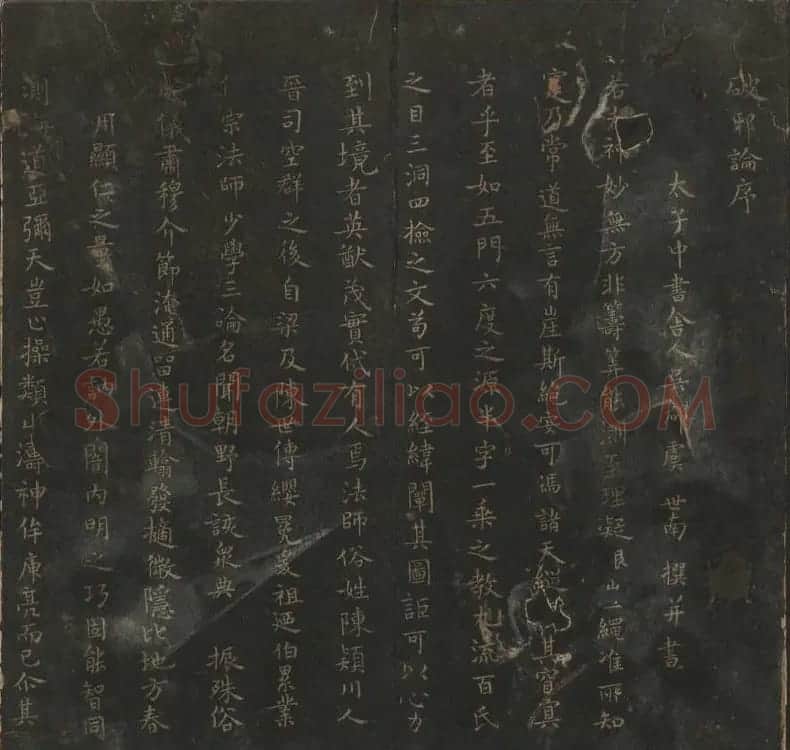 破邪論序
太子中書舍人吳郡虞世南撰并書
若夫神妙無方非籌筭能測至理凝邈豈繩准所知
寔乃常道無言有崖斯絕安可馮諸天縱窺其窅冥
者乎至如五門六度之源半字一乘之教九流百氏
之目三洞四撿之文苟可以經緯闡其圖詎可以心力
到其境者英猷茂實代有人焉法師俗姓陳潁川人
晉司空群之後自梁及陳世傳纓冕爰祖迺伯累業
儒宗法師少學三論名聞朝野長該衆典振殊俗
威儀肅穆介節淹通留連清翰發擿微隱比地方春
用顯仁之量如愚若訥外闇內明之巧固能智同
測道亞彌天豈止操類山濤神侔庾亮而已仐其
Shufaziliao.COM